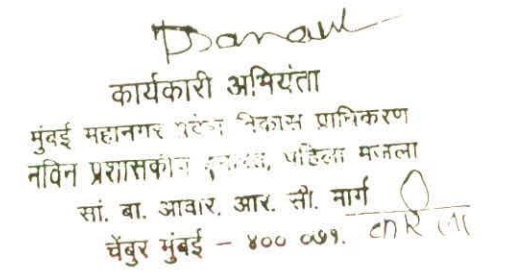 कार्यकारी अभियंता
मुंबई महानगर विकास प्राधिकरण
नविन प्रशासकीय इमारत, पहिला मजला
सां. बा. आवार, आर. सी. मार्ग
चेंबुर मुंबई - ४०० ०७१.